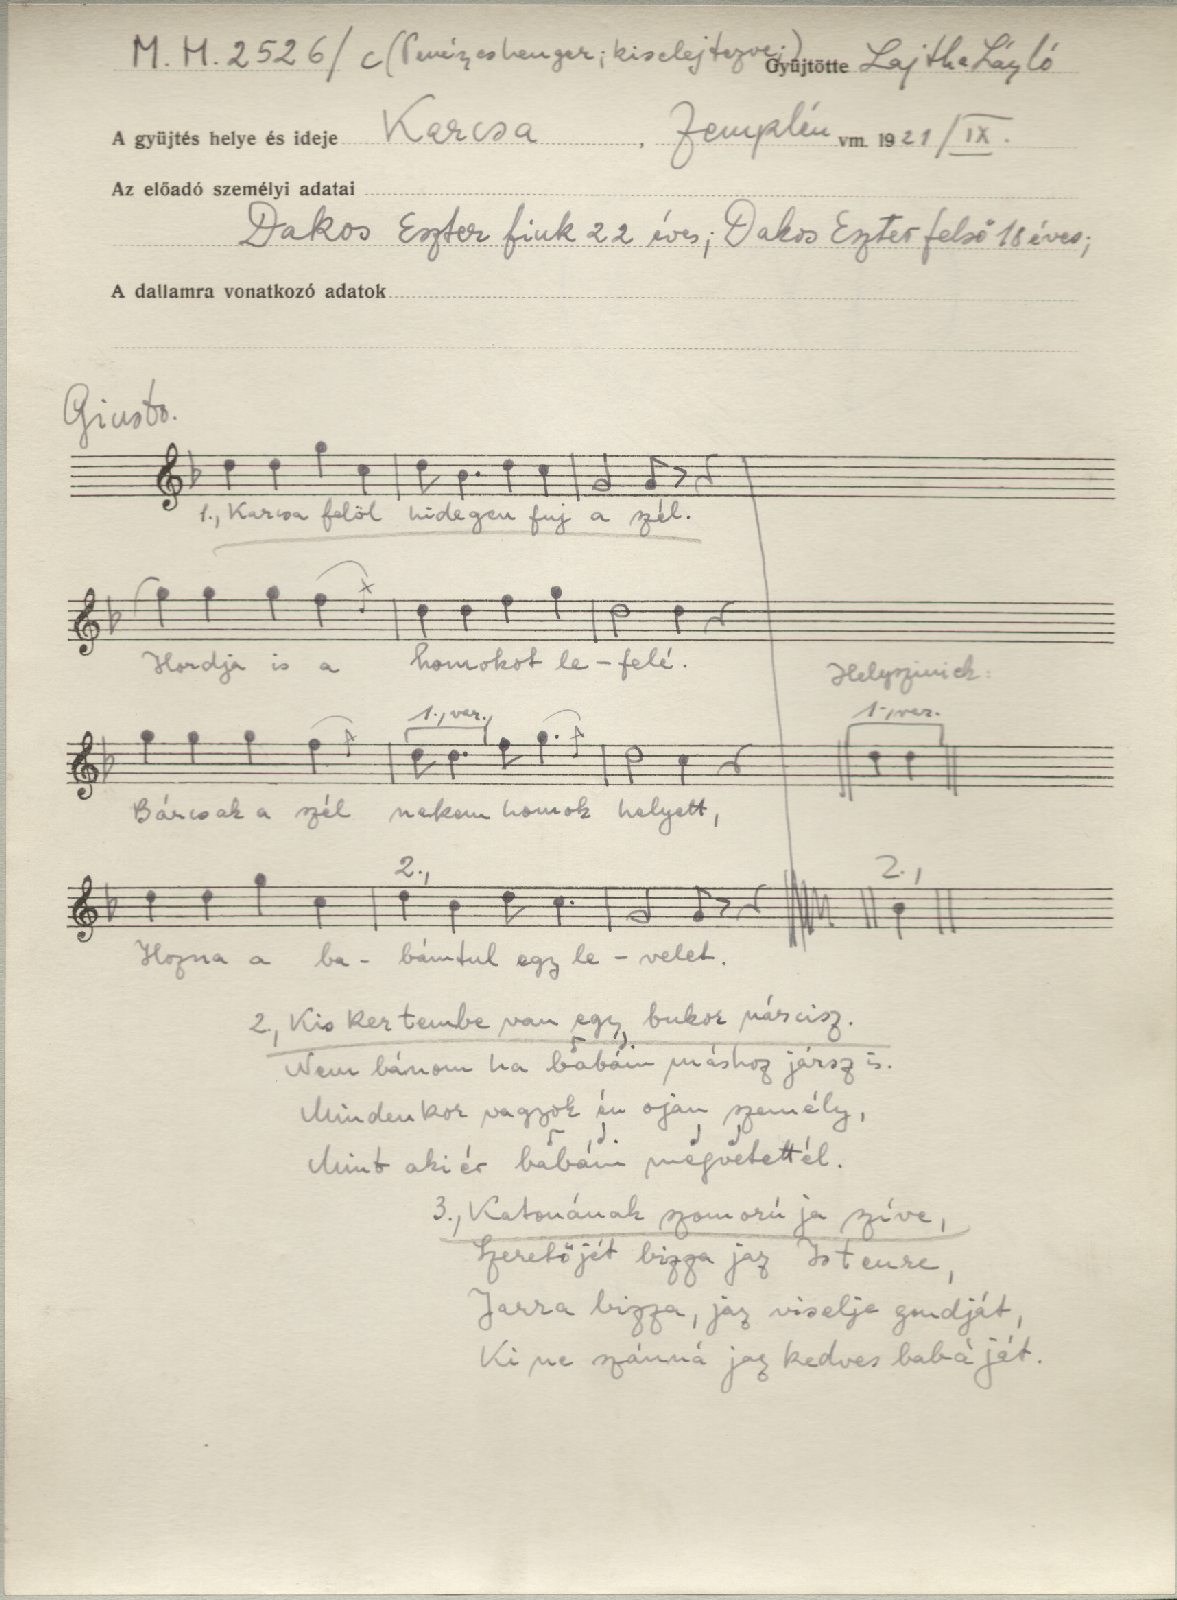 M. H. 2526/c (Penészeshenger; kiselejtezve;) Gyűjtötte Lajtha László
A gyűjtés helye és ideje Karcsa, Zemplén vm. 1921/IX.
Az előadó személyi adatai
Dakos Eszter fiuk 22 éves; Dakos Eszter felső 18 éves;
A dallamra vonatkozó adatok
Giusto.
1., Karcsa felöl hidegen fuj a szél.
Hordja is a homokot le-felé.
Helyszíniek:
1., var. 1., var.
Bárcsak a szél nekem homok helyett,
2., 2.,
Hozna a ba- bámtul egy le-velet.
2., Kis kertembe van egy bukor nárcisz.
Nem bánom ha babám máshoz jársz is.
Mindenkor vagyok én ojan személy,
Mint akiér babám megvetettél.
3., Katonának szomorú ja szíve,
Szeretőjét bizza jaz Istenre,
Jarra bizza, jaz viselje gondját,
Ki ne szánná jaz kedves babáját.